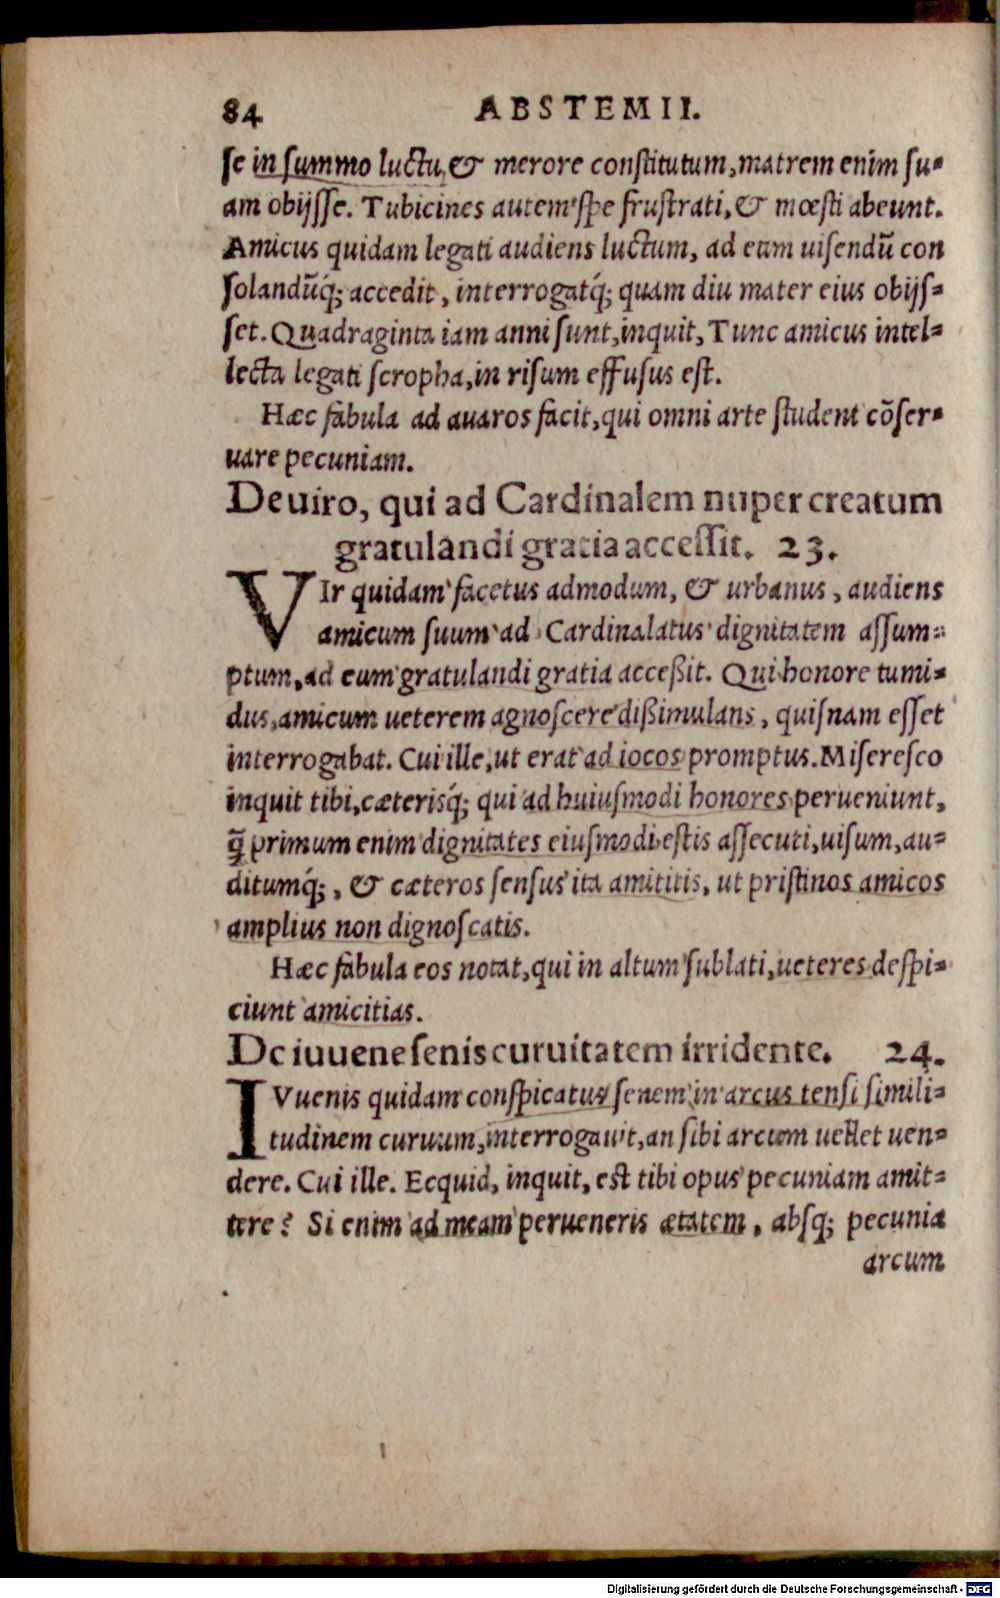 84 ABSTEMII.
ſe in ſummo luctu, & merore conſtitutum, matrem enim ſu-
am obijſſe. Tubicines autem ſpe fruſtrati, & mœſti abeunt.
Amicus quidam legati audiens luctum, ad eum uiſendũ con
ſolandũq́; accedit, interrogatq́; quam diu mater eius obijſ-
ſet. Quadraginta iam anni ſunt, inquit, Tunc amicus intel-
lecta legati ſcropha, in riſum effuſus eſt.
Hæc fabula ad auaros facit, qui omni arte ſtudent cõſer-
uare pecuniam.
De uiro, qui ad Cardinalem nuper creatum
gratulandi gratia acceſſit. 23.
VIr quidam facetus admodum, & urbanus, audiens
amicum ſuum ad Cardinalatus dignitatem aſſum-
ptum, ad eum gratulandi gratia acceßit. Qui honore tumi-
dus, amicum ueterem agnoſcere dißimulans, quiſnam eſſet
interrogabat. Cui ille, ut erat ad iocos promptus. Miſereſco
inquit tibi, cæterisq́; qui ad huiuſmodi honores perueniunt,
q̃ primum enim dignitates eiuſmodi eſtis aſſecuti, uiſum, au-
ditumq́;, & cæteros ſenſus ita amititis, ut priſtinos amicos
amplius non dignoſcatis.
Hæc fabula eos notat, qui in altum ſublati, ueteres deſpi-
ciunt amicitias.
De iuuene ſenis curuitatem irridente. 24.
IVuenis quidam conſpicatus ſenem in arcus tenſi ſimili-
tudinem curuum, interrogauit, an ſibi arcum uellet uen-
dere. Cui ille. Ecquid, inquit, eſt tibi opus pecuniam amit-
tere? Si enim ad meam perueneris ætatem, absq; pecunia
arcum
Digitalisierung gefördert durch die Deutsche Forschungsgemeinschaft - DFG